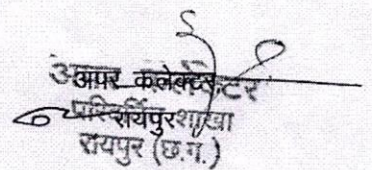 अपर कलेक्टर
रायपुर शाखा
रायपुर (छ.ग.)